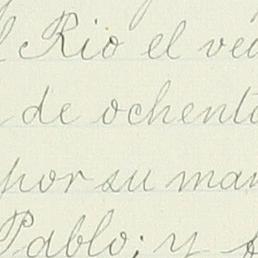 l Rio el vec
de ochenta
por su man
Pablo; y f